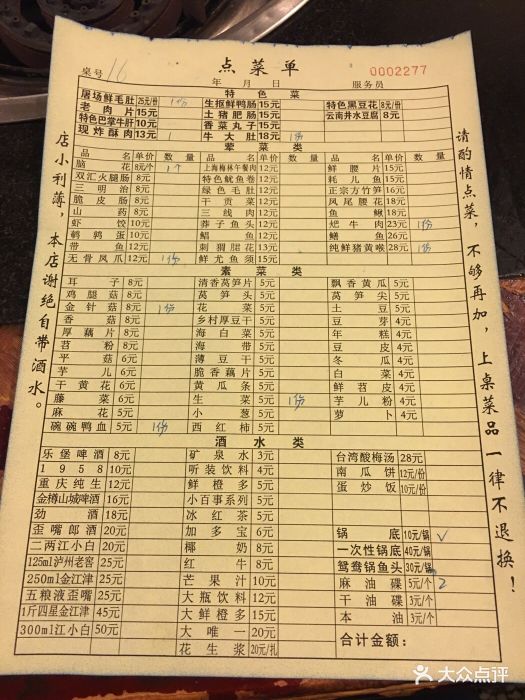 点菜单
桌号 16 年 月 日 服务员 0002277
特色菜
屠场鲜毛肚 25元/份 1份 生抠鲜鸭肠 15元 特色黑豆花 8元/份
老肉片 15元 土猪肥肠 15元 云南井水豆腐 8元
特色巴掌牛肝 10元 香菜丸子 15元
现炸酥肉 13元 1 牛大肚 18元 1份
荤菜类
品名 单价 数量 品名 单价 数量 品名 单价 数量
脑花 8元/个 1个 上海梅林午餐肉 12元 鲜腰片 15元
双汇火腿肠 8元 特色鱿鱼卷 12元 耗儿鱼 15元
三明治 8元 绿色毛肚 12元 正宗方竹笋 16元
脆皮肠 8元 干贡菜 12元 凤尾腰花 18元
山药 8元 三线肉 12元 鱼鳅 18元
虾饺 10元 荞子鱼头 12元 粑牛肉 23元 1份
鹌鹑蛋 10元 鲳鱼 12元 鳝鱼 26元
带鱼 12元 刺猬腰花 13元 纯鲜猪黄喉 28元 1份
无骨凤爪 12元 1份 鲜尤鱼须 15元
素菜类
耳子 8元 清香莴笋片 5元 飘香黄瓜 5元
鸡腿菇 8元 莴笋头 5元 莴笋尖 5元
金针菇 8元 1份 花菜 5元 土豆 5元
香菇 8元 乡村厚豆干 5元 豆芽 4元
厚藕片 8元 海白菜 5元 年糕 4元
苕粉 8元 海带 5元 豆皮 4元
平菇 6元 薄豆干 5元 冬瓜 4元
芋儿 6元 脆香藕片 5元 白菜 4元
干黄花 6元 黄瓜条 5元 鲜苕皮 4元
藤菜 6元 生菜 5元 1份 芋儿粉 4元
麻花 5元 小葱 5元 萝卜 4元
碗碗鸭血 5元 1份 西红柿 5元
酒水类
乐堡啤酒 8元 矿泉水 3元 台湾酸梅汤 28元
1958 10元 听装饮料 4元 南瓜饼 12元/份
重庆纯生 12元 鲜橙多 5元 蛋炒饭 10元/份
金樽山城啤酒 16元 小百事系列 5元
劲酒 18元 冰红茶 5元
歪嘴郎酒 20元 加多宝 6元 锅底 10元/锅 √
二两江小白 20元 椰奶 8元 一次性锅底 40元/锅
125ml泸州老窖 25元 红牛 8元 鸳鸯锅鱼头 30元/锅
250ml金江津 25元 芒果汁 10元 麻油碟 5元/个 2
五粮液歪嘴 25元 大瓶饮料 12元 干油碟 3元/个
1斤四星金江津 45元 大鲜橙多 15元 本油 3元/个
300ml江小白 50元 大唯一 20元 合计金额:
花生浆 20元/扎
店小利薄,本店谢绝自带酒水。
请酌情点菜,不够再加,上桌菜品一律不退换!
大众点评